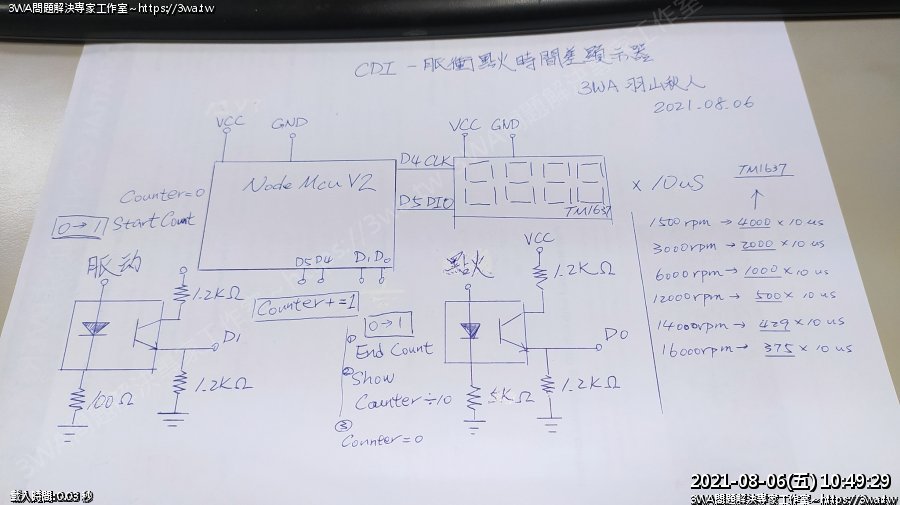 3WA問題解決專家工作室~https://3wa.tw
CDI - 脈衝點火時間差顯示器
3WA 羽山秋人
2021.08.06
VCC GND
VCC GND
Counter=0
0→1 Start Count
Node Mcu V2
D4 CLK
D5 DIO
TM1637
× 10uS
TM1637
1500rpm → 4000 × 10 us
3000rpm → 2000 × 10 us
6000rpm → 1000 × 10 us
12000rpm → 500 × 10 us
14000rpm → 429 × 10 us
16000rpm → 375 × 10 us
D5 D4 D1 D0
Counter+=1
脈动
1.2KΩ
D1
100Ω
1.2KΩ
0→1
① End Count
② Show
Counter÷10
③
Counter=0
點火
VCC
1.2KΩ
D0
5KΩ
1.2KΩ
2021-08-06(五) 10:49:29
載入時間:0.03 秒
3WA問題解決專家工作室~https://3wa.tw